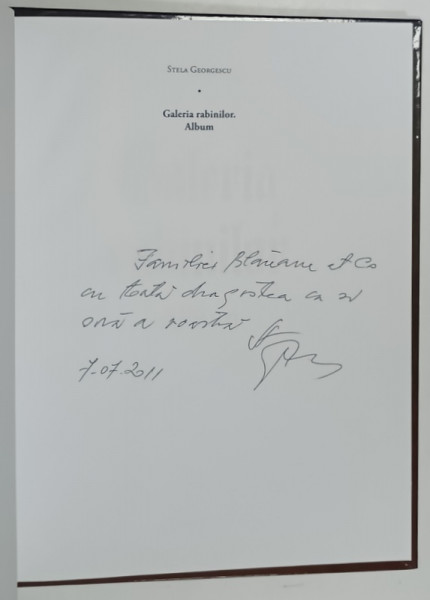 STELA GEORGESCU
•
Galeria rabinilor.
Album
Familiei et Co
cu toată dragostea ca și
a voastră
7.07.2011